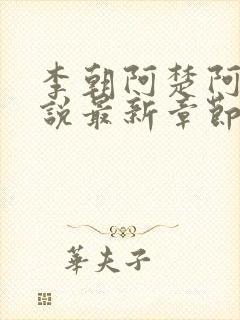 李朝阿楚阿
說最新章節
華夫子